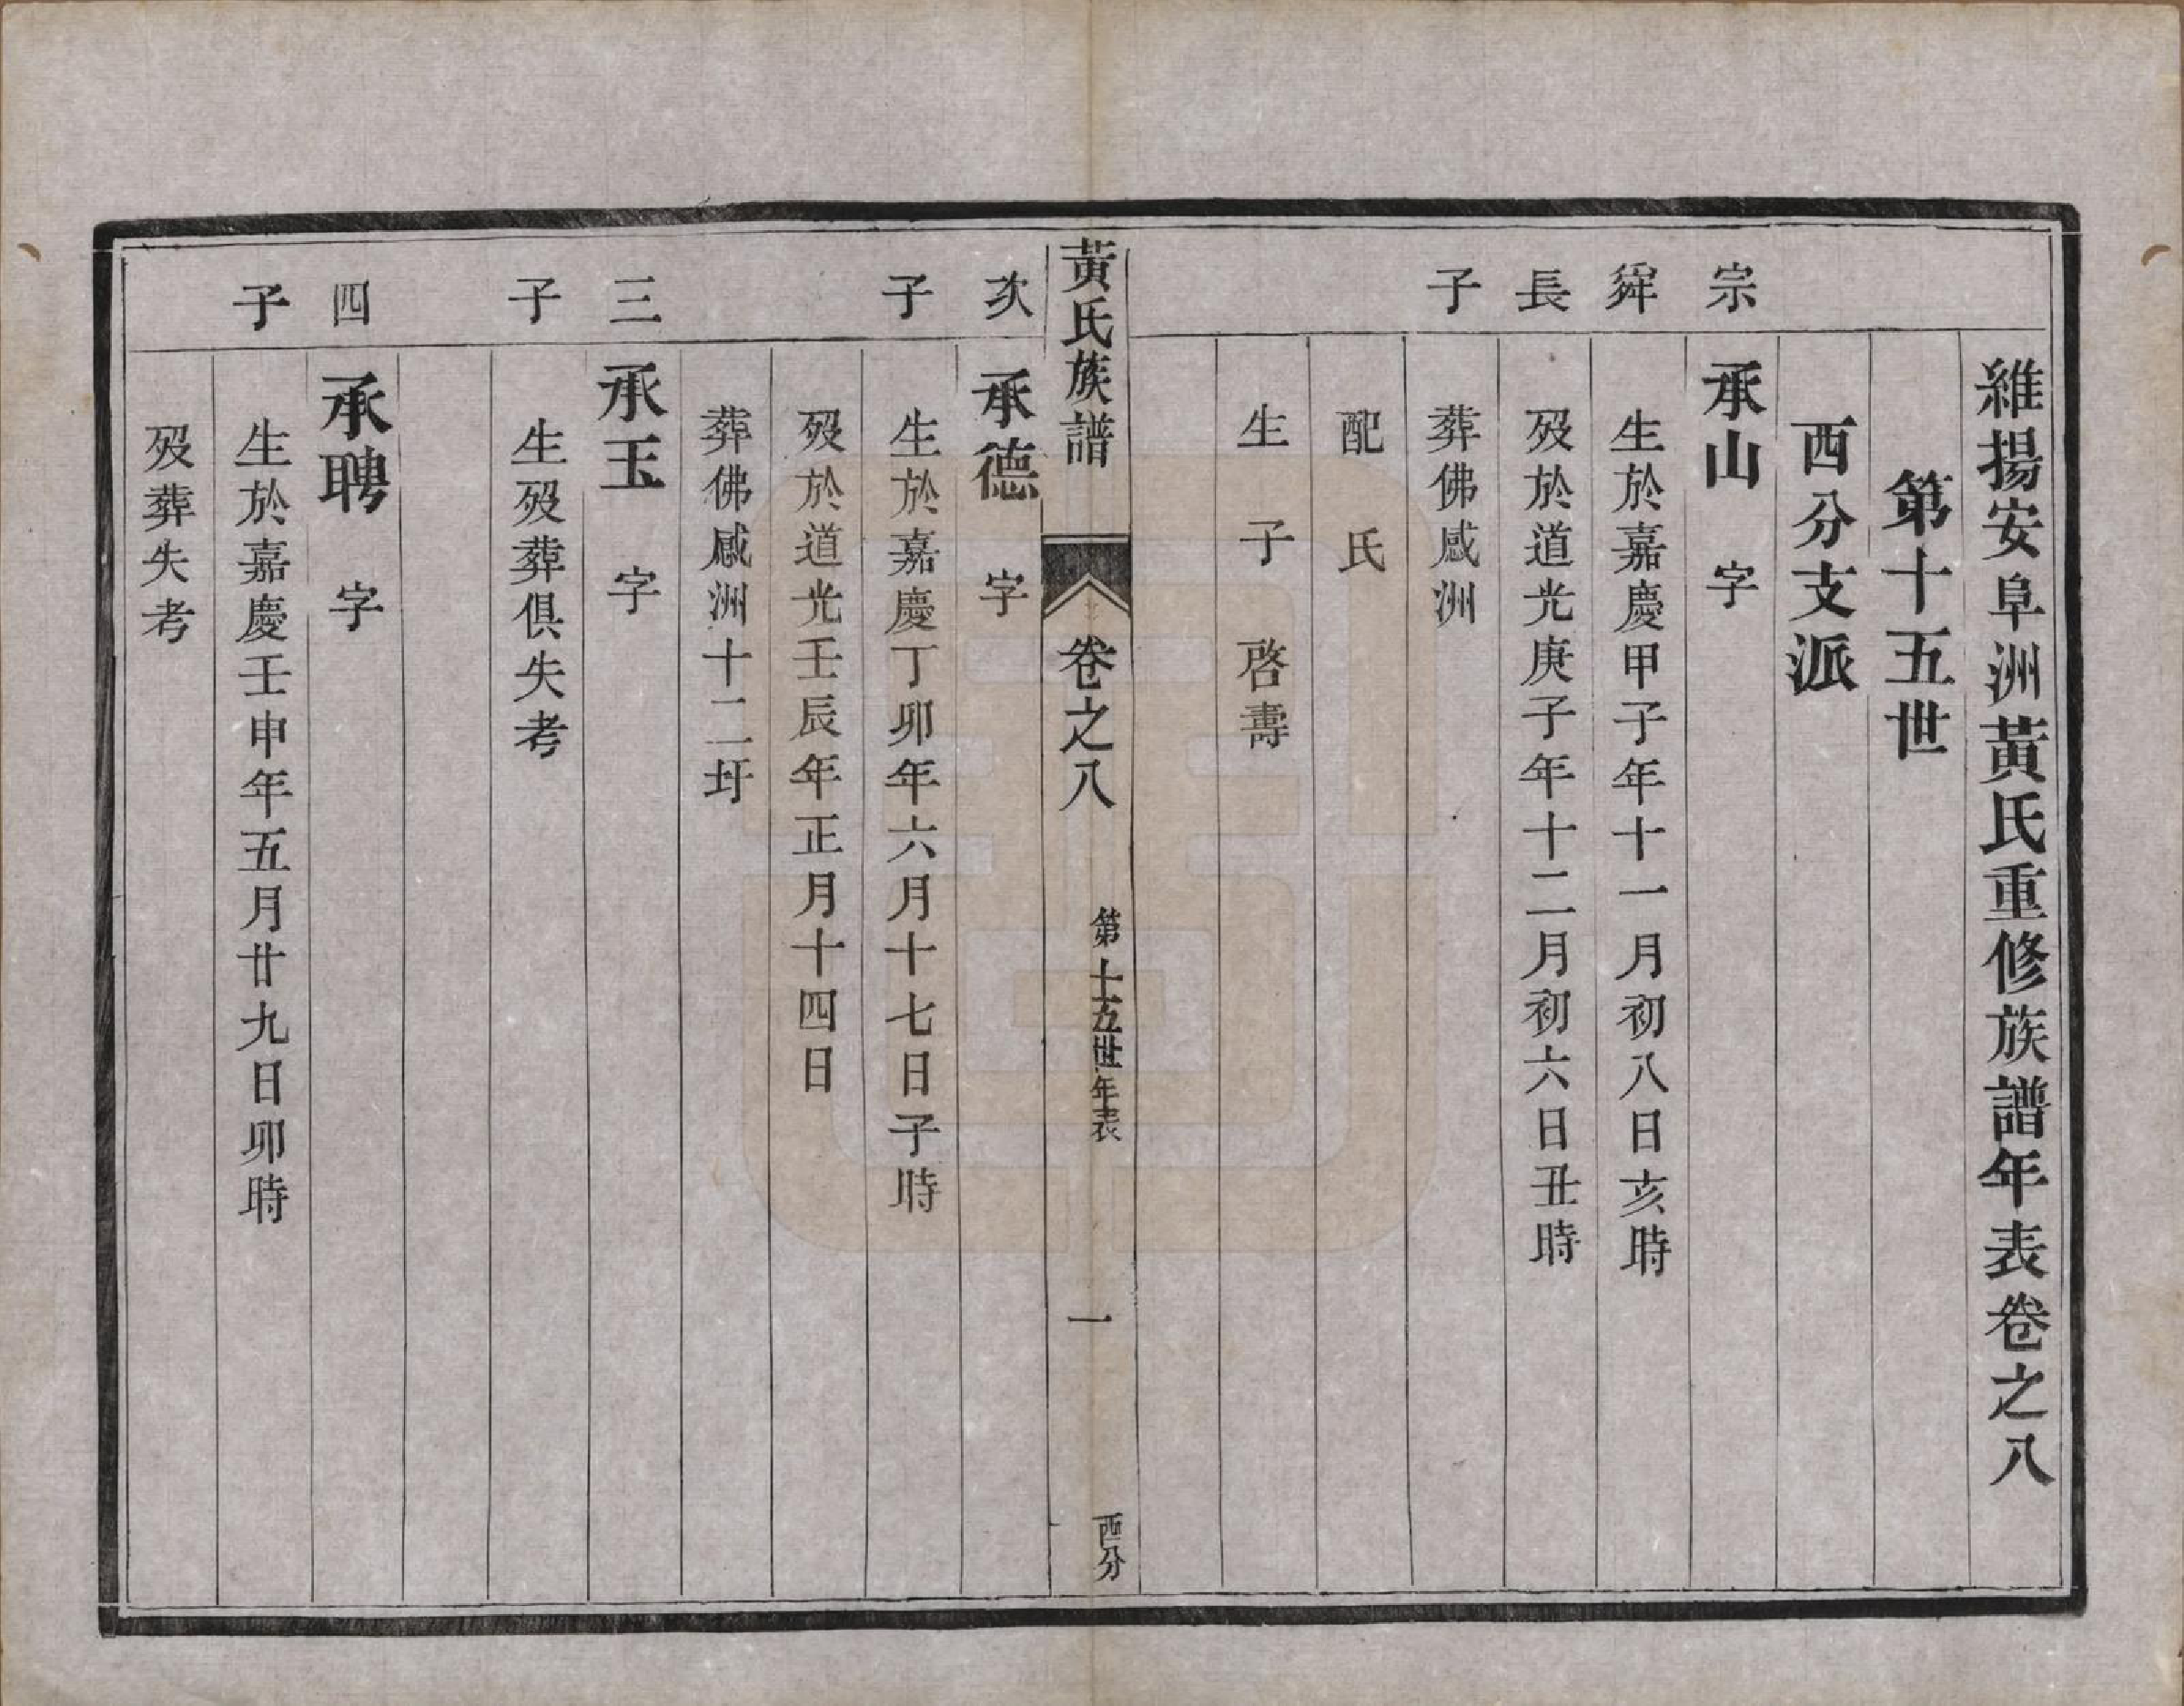 維揚安阜洲黃氏重修族譜年表卷之八
第十五世
西分支派
宗舜長子
承山　字
生於嘉慶甲子年十一月初八日亥時
歿於道光庚子年十二月初六日丑時
葬佛感洲
配　氏
生子　啓壽
黃氏族譜　卷之八　第十五世年表　一　西分
次子
承德　字
生於嘉慶丁卯年六月十七日子時
歿於道光壬辰年正月十四日
葬佛感洲十二圩
三子
承玉　字
生歿葬俱失考
四子
承聘　字
生於嘉慶壬申年五月廿九日卯時
歿葬失考